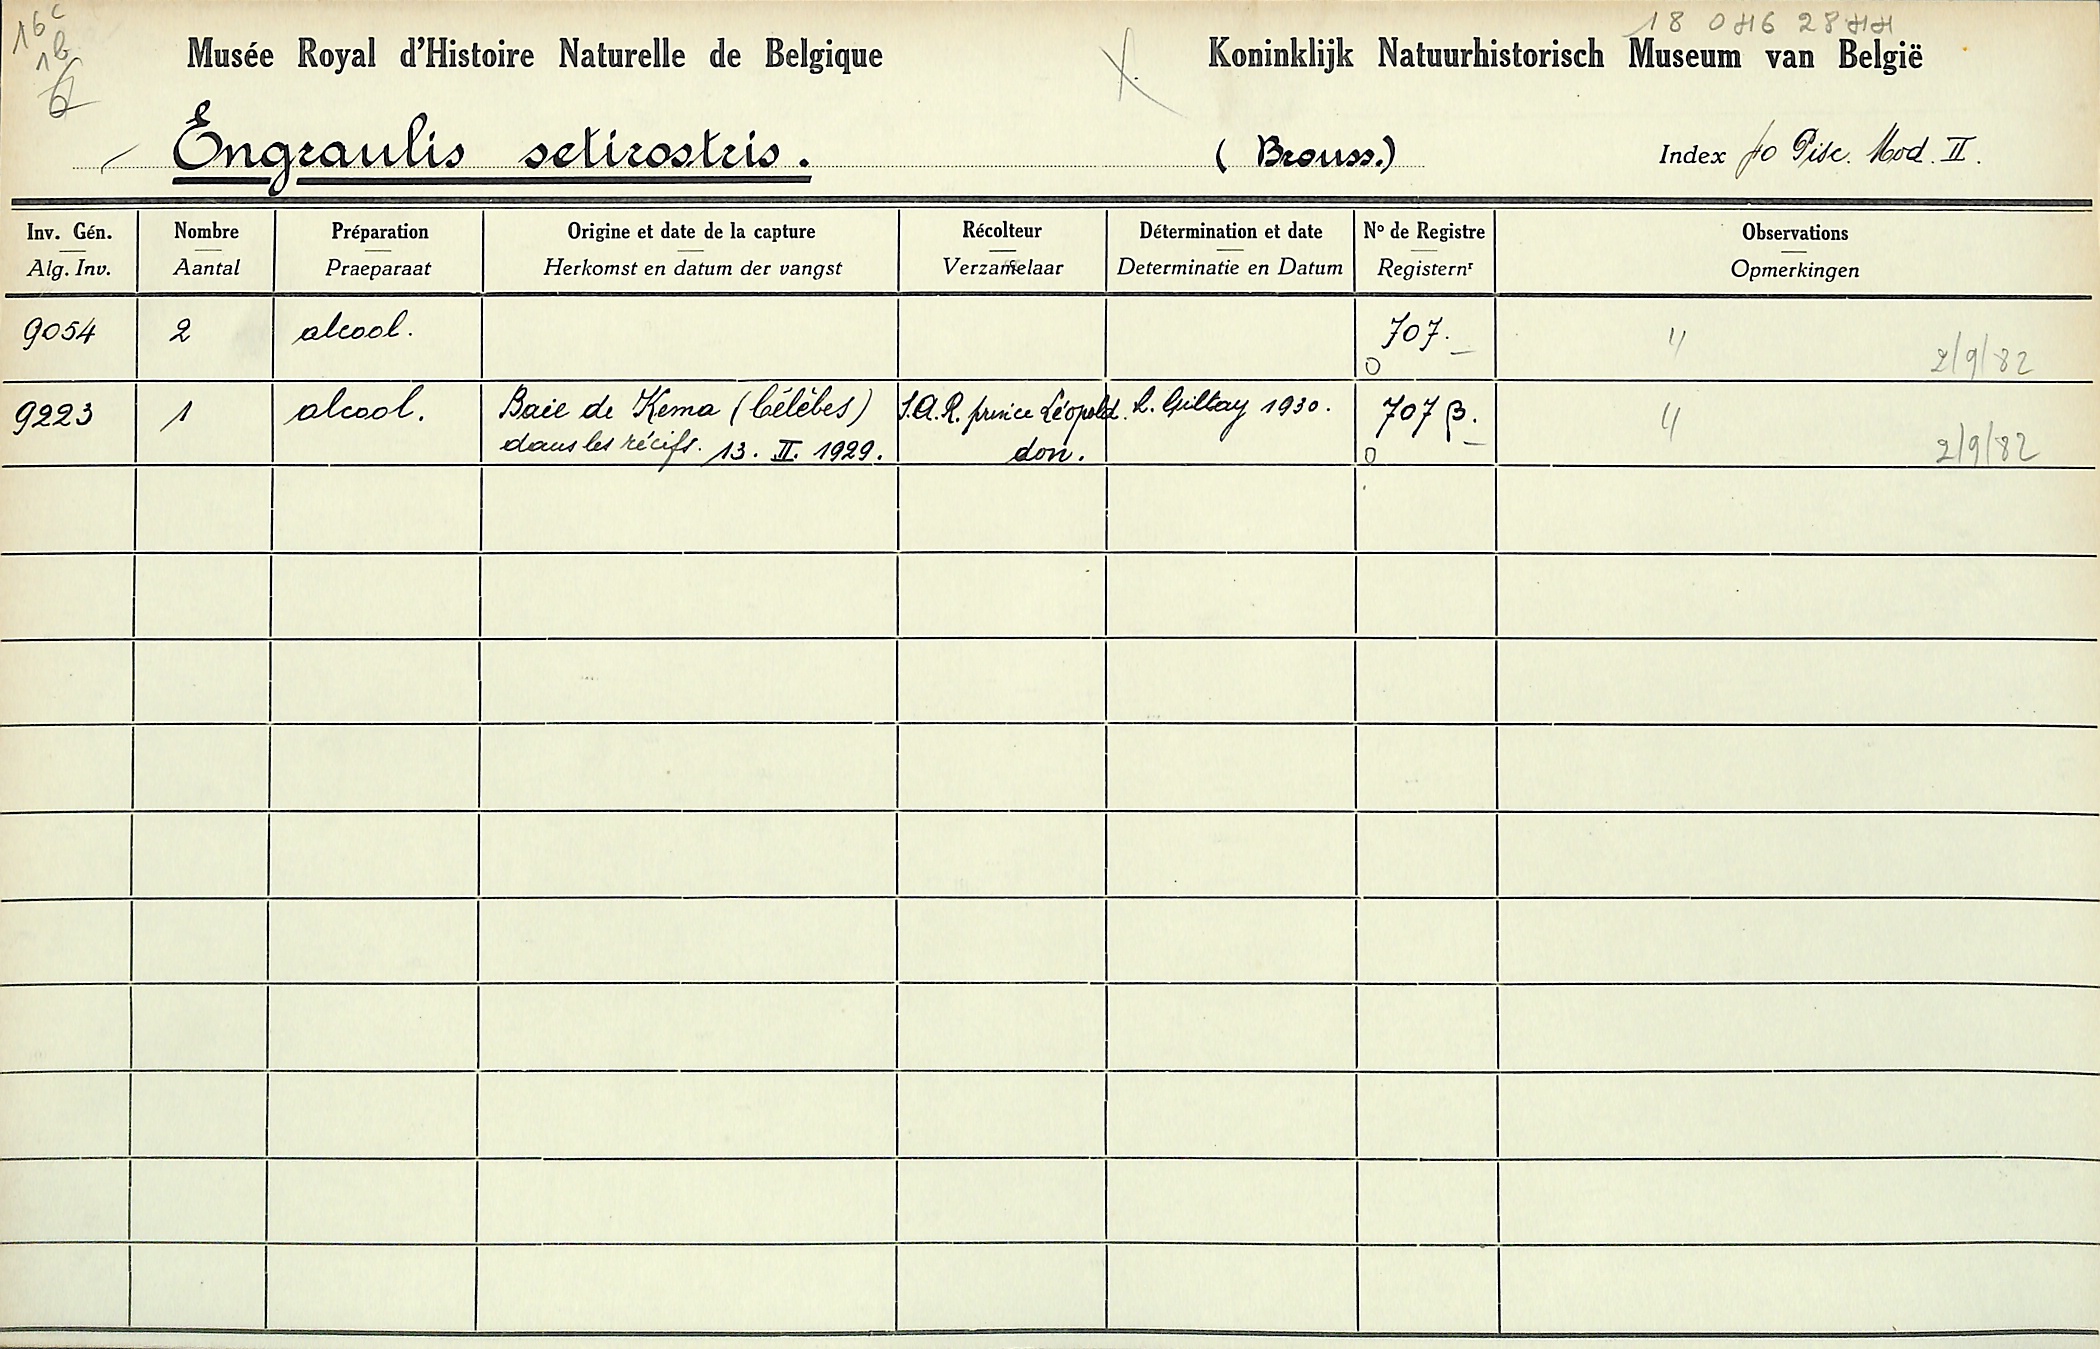 16c
1b
6
18 0H6 28HH
Musée Royal d'Histoire Naturelle de Belgique
Koninklijk Natuurhistorisch Museum van België
Engraulis setirostris. (Brouss.) Index fo Pisc. Mod. II.
Inv. Gén. Nombre Préparation Origine et date de la capture Récolteur Détermination et date No de Registre Observations
Alg. Inv. Aantal Praeparaat Herkomst en datum der vangst Verzamelaar Determinatie en Datum Registernr Opmerkingen
9054 2 alcool. 707. " 2/9/82
9223 1 alcool. Baie de Kema (Célèbes) S.A.R. prince Léopold. L. Giltay 1930. 707 β. "
dans les récifs. 13. II. 1929. don. 2/9/82